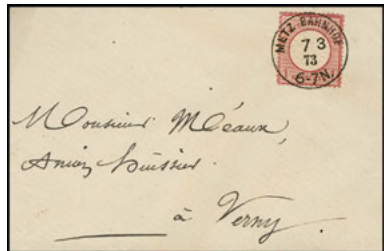 METZ-BAHNHOF
7 3
73
6-7N.
Monsieur Méaux,
huissier
à Verny.